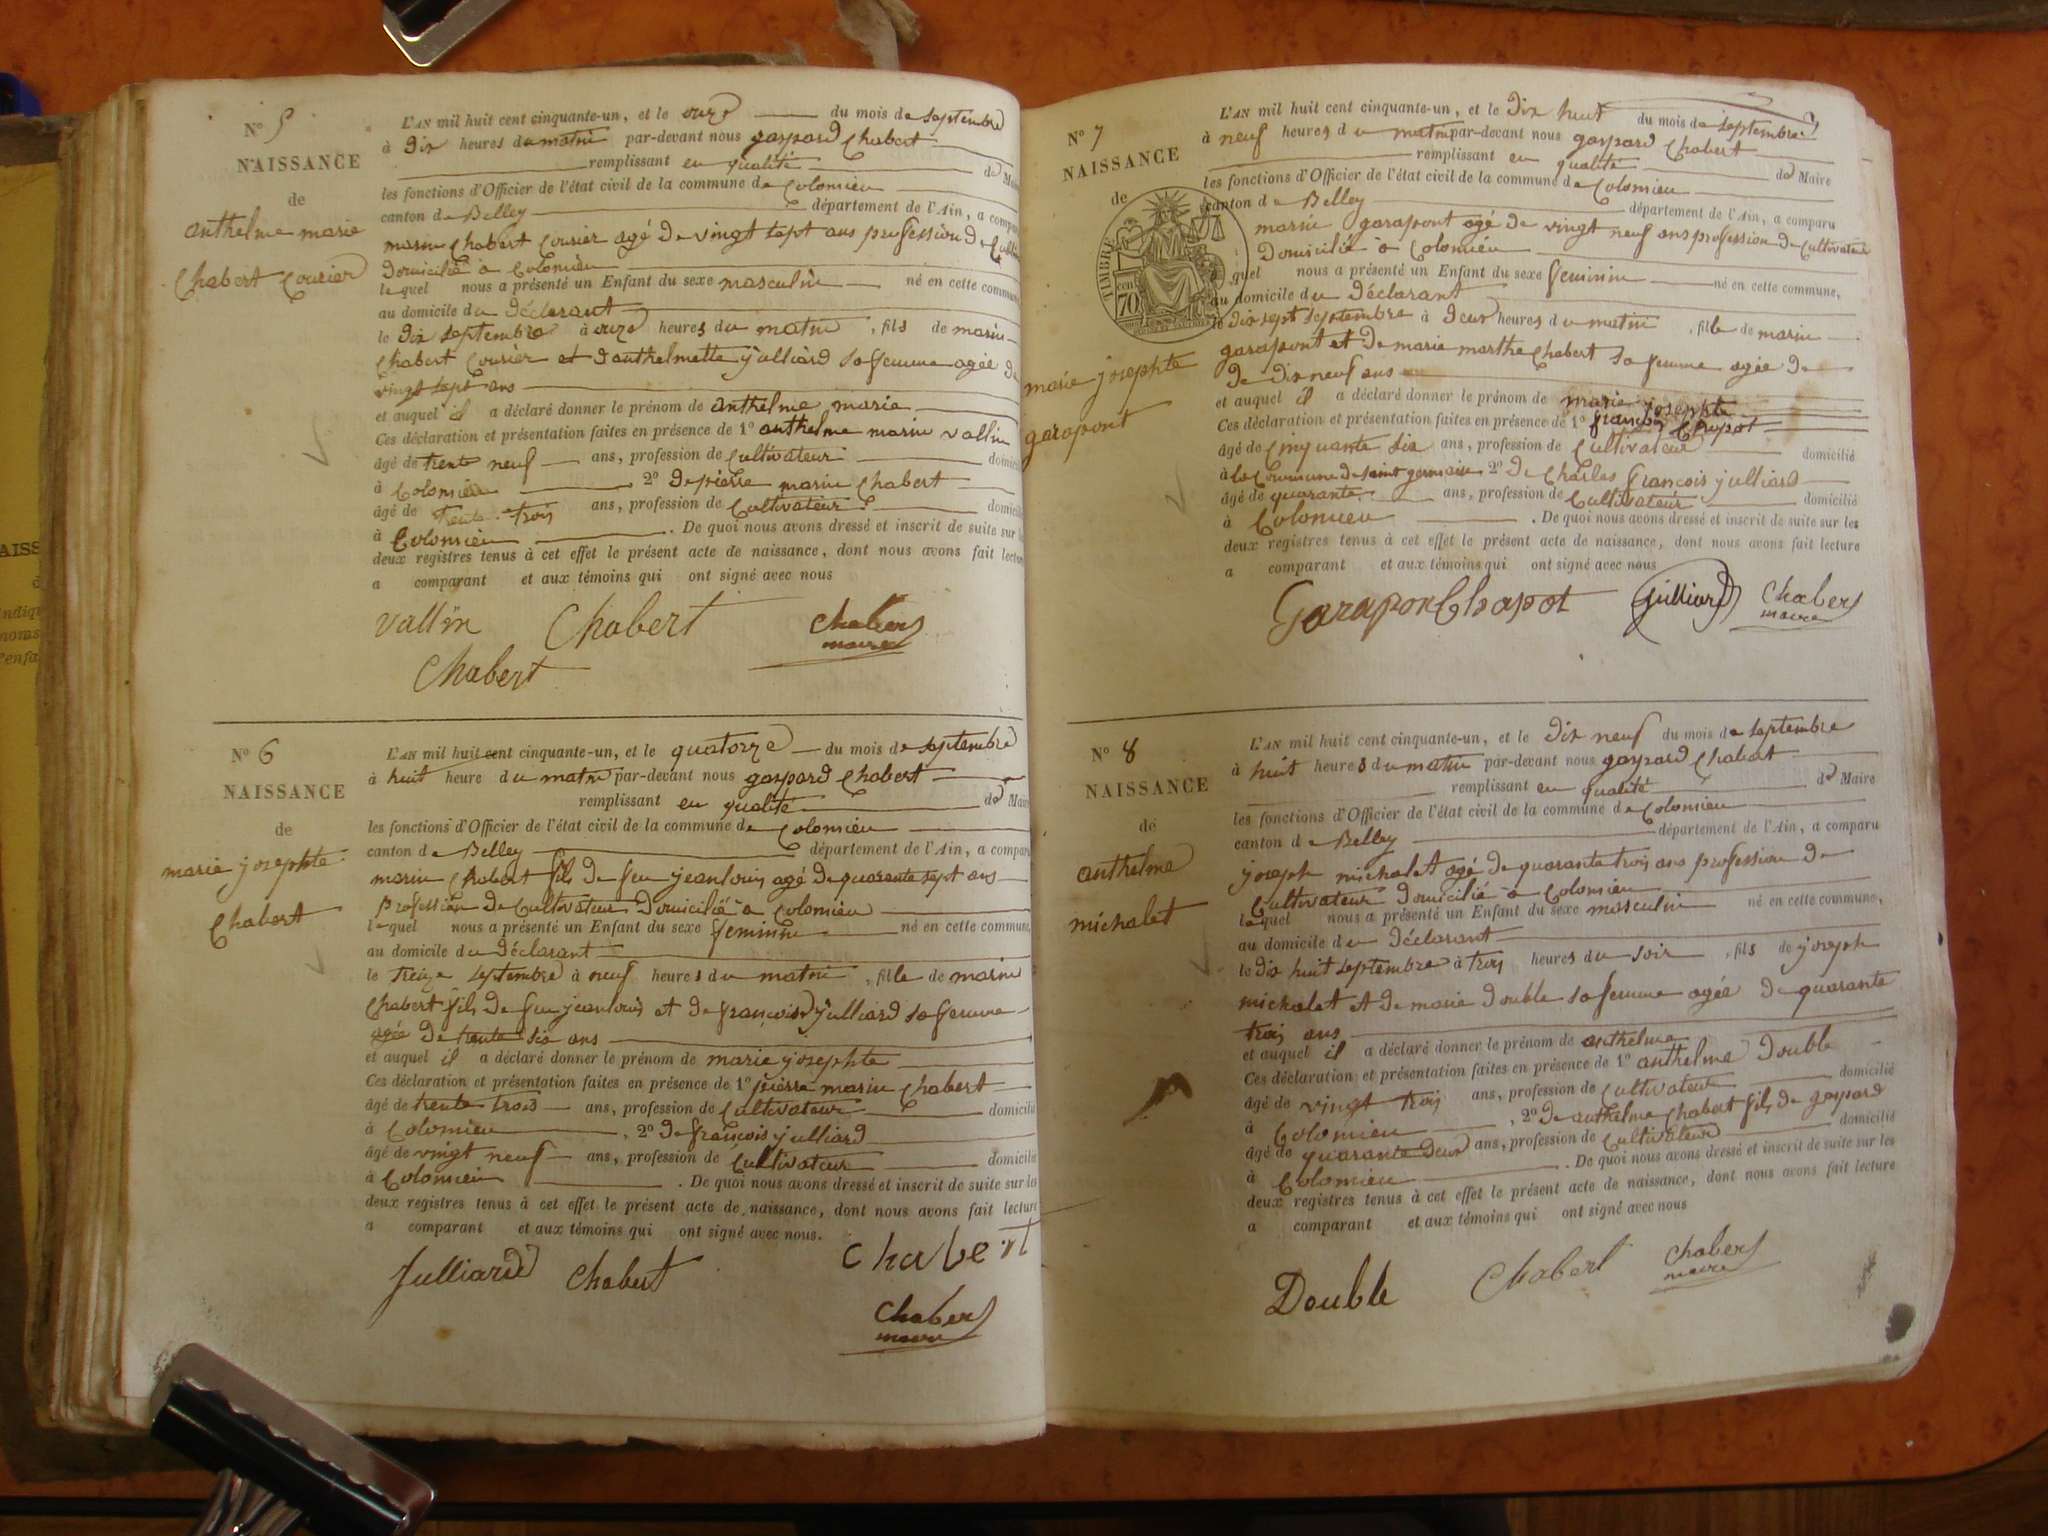 N° 5
NAISSANCE
de
anthelme marie
Chabert Courier
L'AN mil huit cent cinquante-un, et le onze du mois de septembre
à dix heures du matin par-devant nous gaspard Chabert
remplissant en qualité de Maire
les fonctions d'Officier de l'état civil de la commune de Colomieu
canton de Belley département de l'Ain, a comparu
marin Chabert Courier agé de vingt sept ans profession de
domicilié a Colomieu
lequel nous a présenté un Enfant du sexe masculin né en cette commune
au domicile du déclarant
le dix septembre à onze heures du matin, fils de marin
Chabert Courier et d'anthelmette julliard sa femme agée de
vingt sept ans
et auquel il a déclaré donner le prénom de anthelme marie
Ces déclaration et présentation faites en présence de 1° anthelme marin vallin
âgé de trente neuf ans, profession de Cultivateur domicilié
à Colomieu 2° de pierre marin Chabert
âgé de trente trois ans, profession de Cultivateur domicilié
à Colomieu. De quoi nous avons dressé et inscrit de suite sur les
deux registres tenus à cet effet le présent acte de naissance, dont nous avons fait lecture
a comparant et aux témoins qui ont signé avec nous
vallin Chabert Chabert
maire
Chabert
N° 6
NAISSANCE
de
marie josephte
Chabert
L'AN mil huit cent cinquante-un, et le quatorze du mois de septembre
à huit heure du matin par-devant nous gaspard Chabert
remplissant en qualité de Maire
les fonctions d'Officier de l'état civil de la commune de Colomieu
canton de Belley département de l'Ain, a comparu
marin Chabert fils de feu jeanlouis agé de quarante sept ans
profession de Cultivateur domicilié a Colomieu
lequel nous a présenté un Enfant du sexe feminin né en cette commune,
au domicile du déclarant
le treize septembre à neuf heures du matin, fille de marin
Chabert fils de feu jeanlouis et de françoise julliard sa femme
agée de trente six ans
et auquel il a déclaré donner le prénom de marie josephte
Ces déclaration et présentation faites en présence de 1° pierre marin Chabert
âgé de trente trois ans, profession de Cultivateur domicilié
à Colomieu, 2° de françois julliard
âgé de vingt neuf ans, profession de Cultivateur domicilié
à Colomieu. De quoi nous avons dressé et inscrit de suite sur les
deux registres tenus à cet effet le présent acte de naissance, dont nous avons fait lecture
a comparant et aux témoins qui ont signé avec nous.
Julliard Chabert Chabert
Chabert
maire
N° 7
NAISSANCE
de
TIMBRE
70
marie josephte
garapont
L'AN mil huit cent cinquante-un, et le dix huit du mois de septembre
à neuf heures du matin par-devant nous gaspard Chabert
remplissant en qualité de Maire
les fonctions d'Officier de l'état civil de la commune de Colomieu
canton de Belley département de l'Ain, a comparu
marin garapont agé de vingt neuf ans profession de Cultivateur
domicilié a Colomieu
quel nous a présenté un Enfant du sexe feminin né en cette commune,
au domicile du déclarant
le dix sept septembre à deux heures du matin, fille de marin
garapont et de marie marthe Chabert sa femme agée de
de dix neuf ans
et auquel il a déclaré donner le prénom de marie josephte
Ces déclaration et présentation faites en présence de 1° françois Chapot
âgé de cinquante six ans, profession de Cultivateur domicilié
à la Commune de saint germain 2° de Charles françois julliard
âgé de quarante ans, profession de Cultivateur domicilié
à Colomieu. De quoi nous avons dressé et inscrit de suite sur les
deux registres tenus à cet effet le présent acte de naissance, dont nous avons fait lecture
a comparant et aux témoins qui ont signé avec nous
Garapon Chapot Julliard Chabert
maire
N° 8
NAISSANCE
de
anthelme
michalet
L'AN mil huit cent cinquante-un, et le dix neuf du mois de septembre
à huit heures du matin par-devant nous gaspard Chabert
remplissant en qualité de Maire
les fonctions d'Officier de l'état civil de la commune de Colomieu
canton de Belley département de l'Ain, a comparu
joseph michalet agé de quarante trois ans profession de
Cultivateur domicilié a Colomieu
lequel nous a présenté un Enfant du sexe masculin né en cette commune,
au domicile du déclarant
le dix huit septembre à trois heures du soir, fils de joseph
michalet et de marie double sa femme agée de quarante
trois ans
et auquel il a déclaré donner le prénom de anthelme
Ces déclaration et présentation faites en présence de 1° anthelme Double
âgé de vingt trois ans, profession de Cultivateur domicilié
à Colomieu, 2° de anthelme Chabert fils de gaspard
âgé de quarante deux ans, profession de Cultivateur domicilié
à Colomieu. De quoi nous avons dressé et inscrit de suite sur les
deux registres tenus à cet effet le présent acte de naissance, dont nous avons fait lecture
a comparant et aux témoins qui ont signé avec nous
Double Chabert Chabert
maire